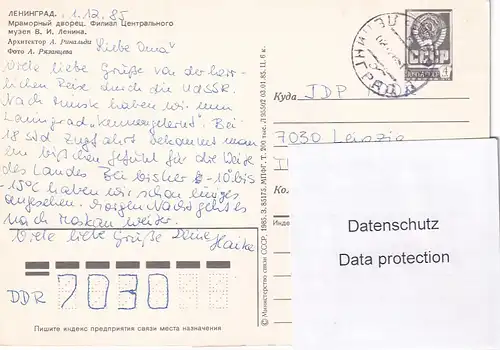 ЛЕНИНГРАД. 1.12.85
Мраморный дворец. Филиал Центрального
музея В. И. Ленина.
Архитектор А. Ринальди
Фото Л. Рязанцева
Liebe Oma!
Viele liebe Grüße von der herr-
lichen Reise durch die UdSSR.
Nach Minsk haben wir nun
Leningrad "kennengelernt". Bei
18 Std Zugfahrt bekommt man
ein bißchen Gefühl für die Weite
des Landes. Bei bisher -10 bis
-15°C haben wir schon einiges
angesehen. Morgen Nacht geht es
nach Moskau weiter.
Viele liebe Grüße Deine
Heike
DDR 7030
Пишите индекс предприятия связи места назначения
© Министерство связи СССР. 1985. З. 85175. МПФГ. Т. 200 тыс. 03.01.85. Ц. 6 к.
СССР
ПОЧТА 4
Куда IDP
7030 Leipzig
Ко
Индекс
Datenschutz
Data protection